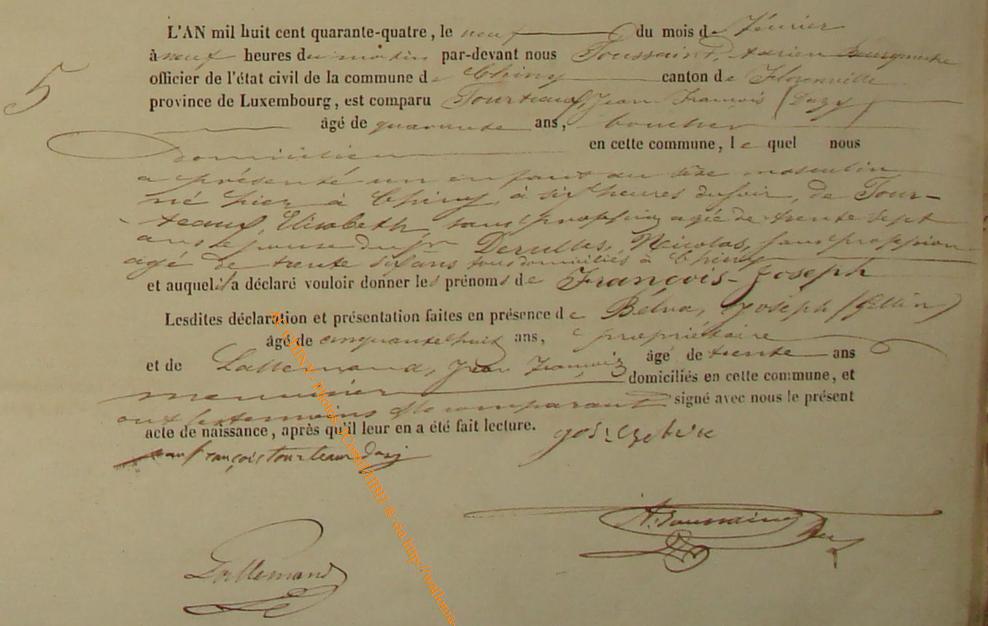 5
L'AN mil huit cent quarante-quatre, le neuf du mois de février
à neuf heures du matin par-devant nous Toussaint, Adrien Bourgmestre
officier de l'état civil de la commune de Chiny canton de Florenville
province de Luxembourg, est comparu Tourteaux, Jean François (Dazy)
âgé de quarante ans, boucher
domicilien en cette commune, le quel nous
a présenté un enfant du sexe masculin
né hier à Chiny, à six heures du soir, de Tour-
teaux, Elisabeth, sans profession agée de trente sept
ans épouse du sr Derulles, Nicolas, sans profession
agé de trente six ans tous domiciliés à Chiny
et auquel il a déclaré vouloir donner les prénoms de François-Joseph
Lesdites déclaration et présentation faites en présence de Belva, Joseph
âgé de cinquante huit ans, propriétaire
et de Lallemand, Jean François âgé de trente ans
meunier domiciliés en cette commune, et
ont les temoins et le comparant signé avec nous le présent
acte de naissance, après qu'il leur en a été fait lecture.
jean françois tourteaux dazy
A. Toussaint
Lallemand